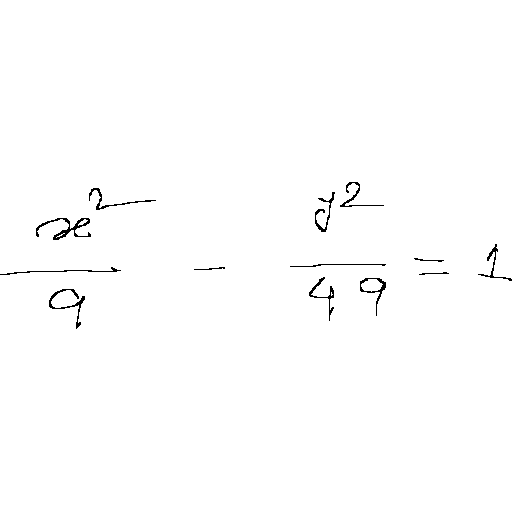 x²/9 - y²/49 = 1